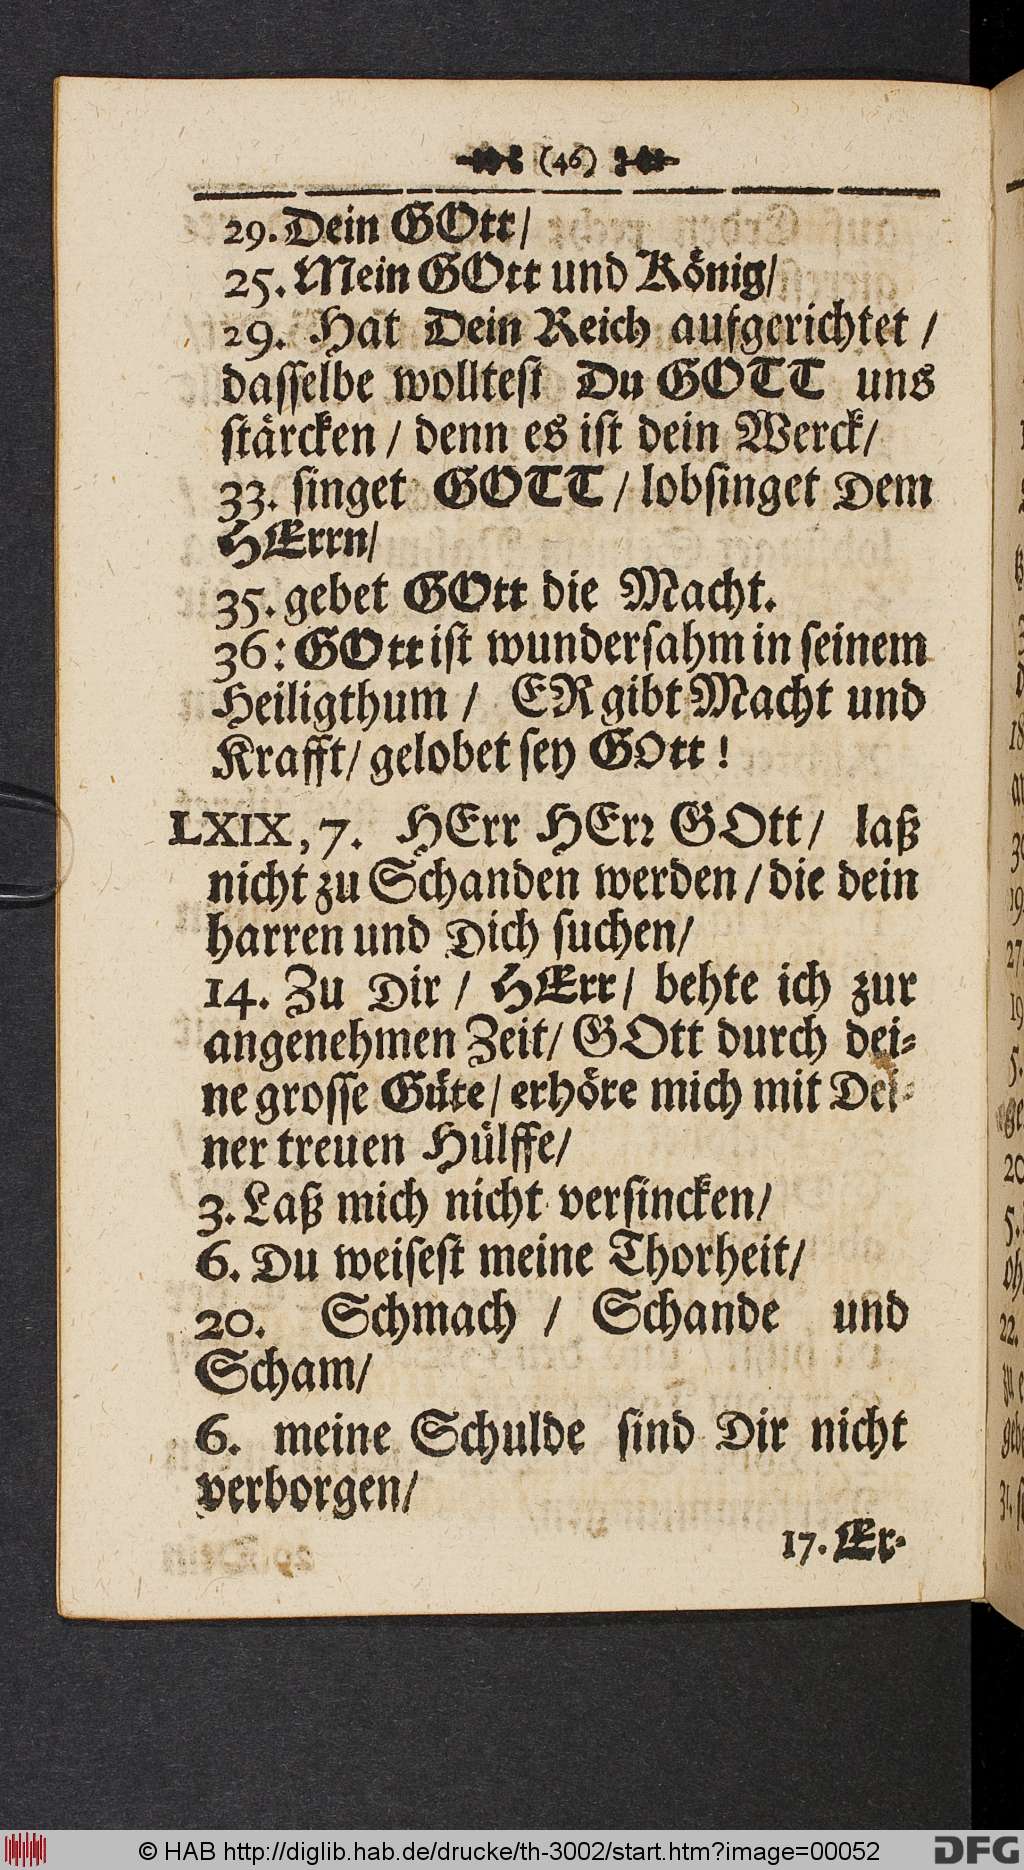 (46)
29. Dein GOtt/
25. Mein GOtt und König/
29. Hat Dein Reich aufgerichtet /
dasselbe wolltest Du GOTT uns
stärcken / denn es ist dein Werck/
33. singet GOTT / lobsinget Dem
HErrn/
35. gebet GOtt die Macht.
36: GOtt ist wundersahm in seinem
Heiligthum / ER gibt Macht und
Krafft/ gelobet sey GOtt !
LXIX, 7. HErr HErr GOtt/ laß
nicht zu Schanden werden / die dein
harren und Dich suchen/
14. Zu Dir / HErr/ behte ich zur
angenehmen Zeit/ GOtt durch dei-
ne grosse Güte/ erhöre mich mit Dei-
ner treuen Hülffe/
3. Laß mich nicht versincken/
6. Du weisest meine Thorheit/
20. Schmach / Schande und
Scham/
6. meine Schulde sind Dir nicht
verborgen/
17. Er-
© HAB http://diglib.hab.de/drucke/th-3002/start.htm?image=00052
DFG